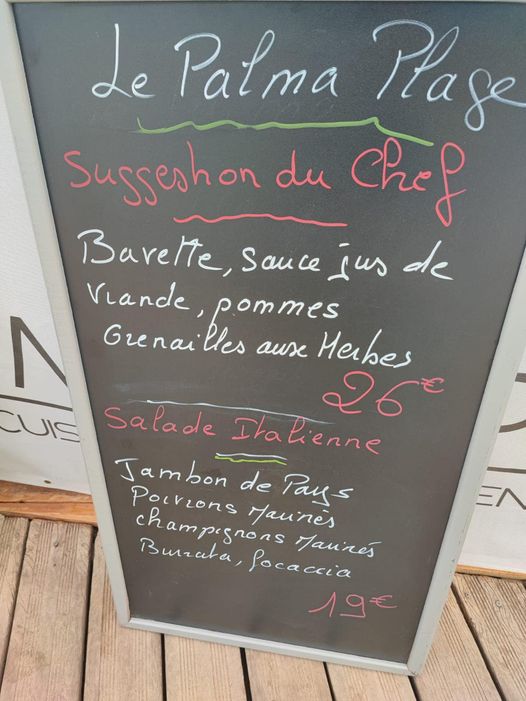 Le Palma Plage
Suggestion du Chef
Bavette, sauce jus de
Viande, pommes
Grenailles aux Herbes
26€
Salade Italienne
Jambon de Pays
Poivrons Marinés
champignons Marinés
Burrata, focaccia
19€
N
CUIS
EN